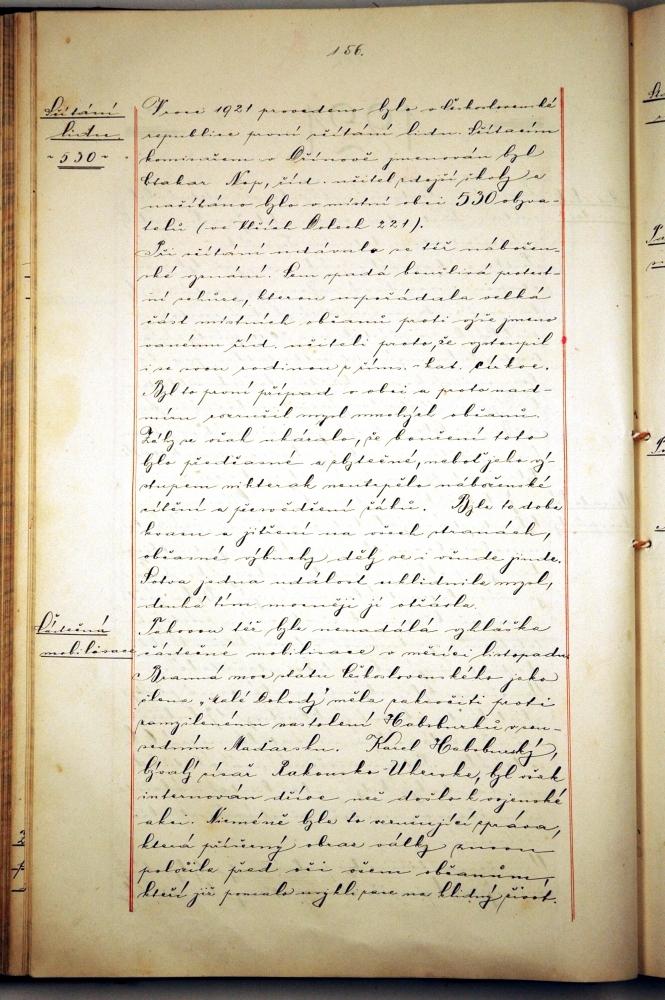 156.
Sčítání
lidu.
- 530 -
V roce 1921 provedeno bylo v československé
republice první sčítání lidu. Sčítacím
komisařem v jmenován byl
Otakar Nop, říd. učitel zdejší školy a
načítáno bylo v místní obci 530 obyva-
telů (ve Dolech 221).
Při sčítání udávalo se též nábožen-
ské vyznání. Sem spadá bouřlivá protest-
ní schůze, kterou uspořádala velká
část místních občanů proti výše jmeno
vanému říd. učiteli proto, že vystoupil
i se svou rodinou z řím.-kat. církve.
Byl to první případ v obci a proto nad-
míru rozrušil mysl mnohých občanů.
Záhy se však ukázalo, že bouření toto
bylo předčasné a zbytečné, neboť jeho vý-
stupem nikterak neutrpělo náboženské
cítění a přesvědčení žáků. Byla to doba
kvasu a jitření na všech stranách,
občasné výbuchy děly se i všude jinde.
Sotva jedna událost uklidnila mysl,
druhá tím mocněji jí otřásla.
Částečná
mobilisace
Takovou též byla nenadálá vyhláška
částečné mobilisace v měsíci listopadu
Branná moc státu Československého jako
člena „Malé Dohody" měla zakročiti proti
zamýšlenému nastolení Habsburků v sou-
sedním Maďarsku. Karel Habsburský,
bývalý císař Rakousko-Uherska, byl však
internován dříve než došlo k vojenské
akci. Nicméně byla to vzrušující zpráva,
která příšerný obraz války znovu
položila před oči všem občanům,
kteří již pomalu uvykli zase na klidný život.